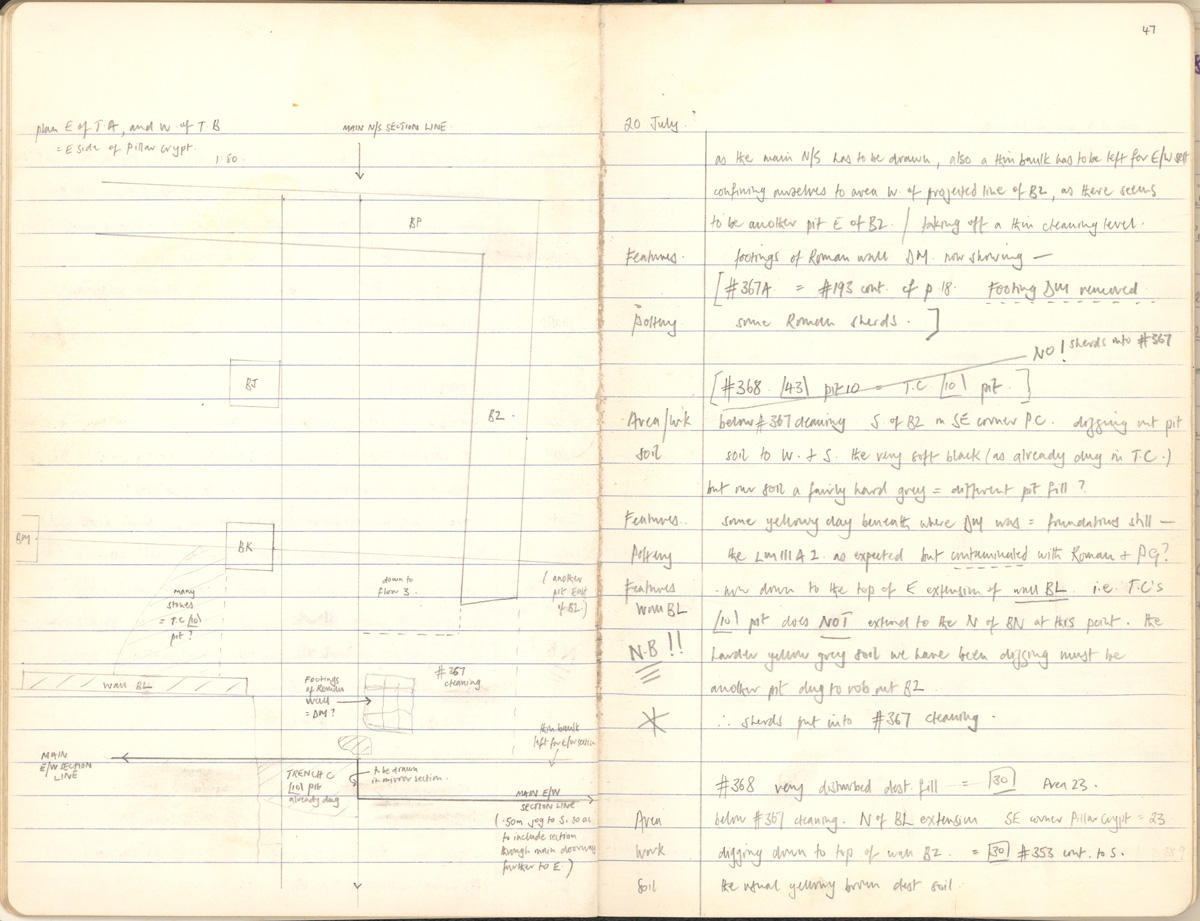 plan E of T.A, and W of T.B
= E side of Pillar Crypt.
1:50.
MAIN N/S SECTION LINE
BP
BJ
BZ
BM
BK
down to
floor 3.
(another
pit East
of BZ)
many
stones
= T.C [10]
pit?
wall BL
Footings
of Roman
wall
= DM?
#367
cleaning
thin baulk
left for E/W section
MAIN
E/W SECTION
LINE
TRENCH C
[10] pit
already dug
to be drawn
in mirror section.
MAIN E/W
SECTION LINE
(.50m jog to S. so as
to include section
through main doorway
further to E.)
47
20 July.
as the main N/S has to be drawn, also a thin baulk has to be left for E/W sect
confining ourselves to area W. of projected line of BZ, as there seems
to be another pit E of BZ. / taking off a thin cleaning level.
Features. footings of Roman wall DM. now showing —
[#367A = #193 cont. cf p.18. Footing DM removed
Pottery some Roman sherds. ]
NO! sherds into #367
[#368 [43] pit 10 = T.C. [10] pit. ]
Area/wk below #367 cleaning S. of BZ in SE corner PC. digging out pit
Soil soil to W. + S. the very soft black (as already dug in T.C.)
but our soil a fairly hard grey = different pit fill?
Features.. some yellowy clay beneath where DM was = foundations still —
Pottery the LM III A 2 as expected but contaminated with Roman + PG?
Features now down to the top of E extension of wall BL. i.e. T.C's
Wall BL
[10] pit does NOT extend to the N of BN at this point. the
N.B!! harder yellow grey soil we have been digging must be
another pit dug to rob out BZ
∴ sherds put into #367 cleaning.
#368 very disturbed dest. fill = [30] Area 23.
Area below #367 cleaning. N of BL extension SE corner Pillar Crypt = 23
Work digging down to top of wall BZ. = [30] #353 cont. to S.
Soil the usual yellowy brown dest soil.